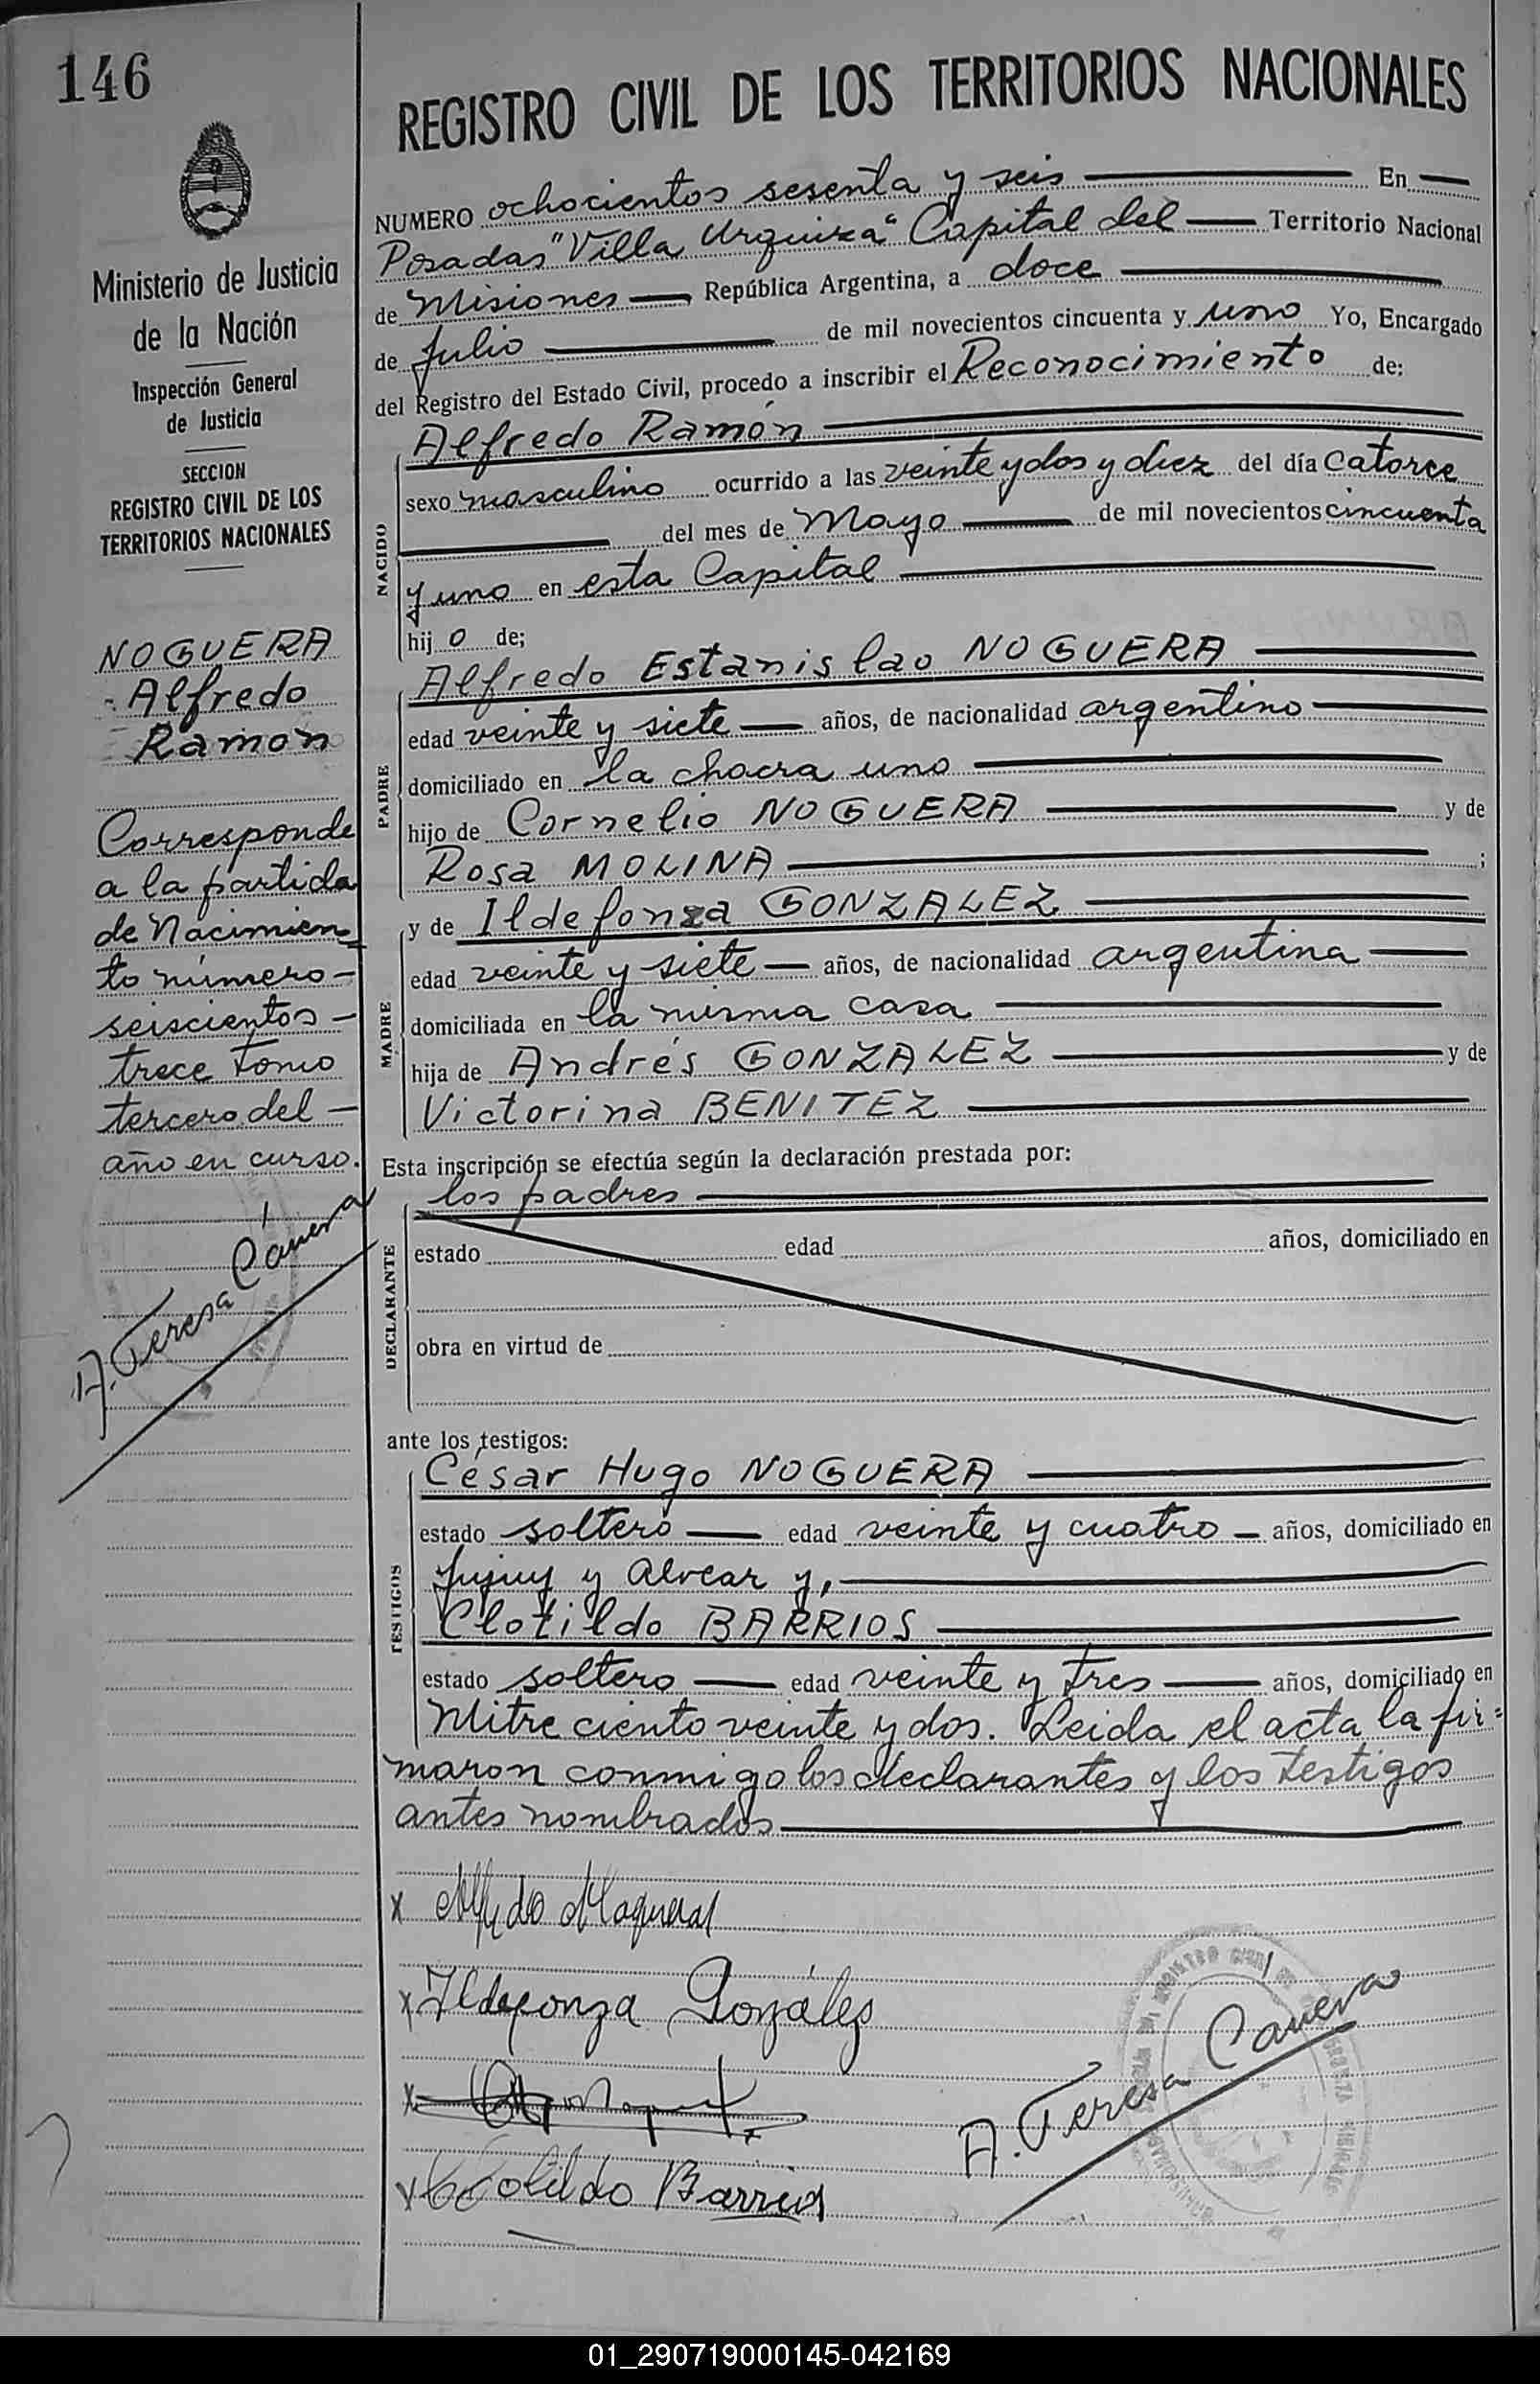 146
REGISTRO CIVIL DE LOS TERRITORIOS NACIONALES
Ministerio de Justicia
de la Nación
Inspección General
de Justicia
SECCION
REGISTRO CIVIL DE LOS
TERRITORIOS NACIONALES
NOGUERA
Alfredo
Ramón
Corresponde
a la partida
de Nacimien
to número
seiscientos
trece Tomo
tercero del
año en curso.
A. Teresa Canera
NUMERO ochocientos sesenta y seis En
Posadas "Villa Urquiza" Capital del Territorio Nacional
de Misiones República Argentina, a doce
de Julio de mil novecientos cincuenta y uno Yo, Encargado
del Registro del Estado Civil, procedo a inscribir el Reconocimiento de:
Alfredo Ramón
NACIDO
sexo masculino ocurrido a las veinte y dos y diez del día catorce
del mes de Mayo de mil novecientos cincuenta
y uno en esta Capital
hijo de;
Alfredo Estanislao NOGUERA
PADRE
edad veinte y siete años, de nacionalidad argentino
domiciliado en la chacra uno
hijo de Cornelio NOGUERA y de
Rosa MOLINA ;
y de Ildefonza GONZALEZ
MADRE
edad veinte y siete años, de nacionalidad argentina
domiciliada en la misma casa
hija de Andrés GONZALEZ y de
Victorina BENITEZ
Esta inscripción se efectúa según la declaración prestada por:
los padres
DECLARANTE
estado edad años, domiciliado en
obra en virtud de
ante los testigos:
César Hugo NOGUERA
TESTIGOS
estado soltero edad veinte y cuatro años, domiciliado en
Jujuy y Alvear y,
Clotildo BARRIOS
estado soltero edad veinte y tres años, domiciliado en
Mitre ciento veinte y dos. Leida el acta la fir=
maron conmigo los declarantes y los testigos
antes nombrados
x Alfredo Noguera
x Ildefonza Gonzáles
x
x Clotildo Barrios
A. Teresa Canera
01_290719000145-042169